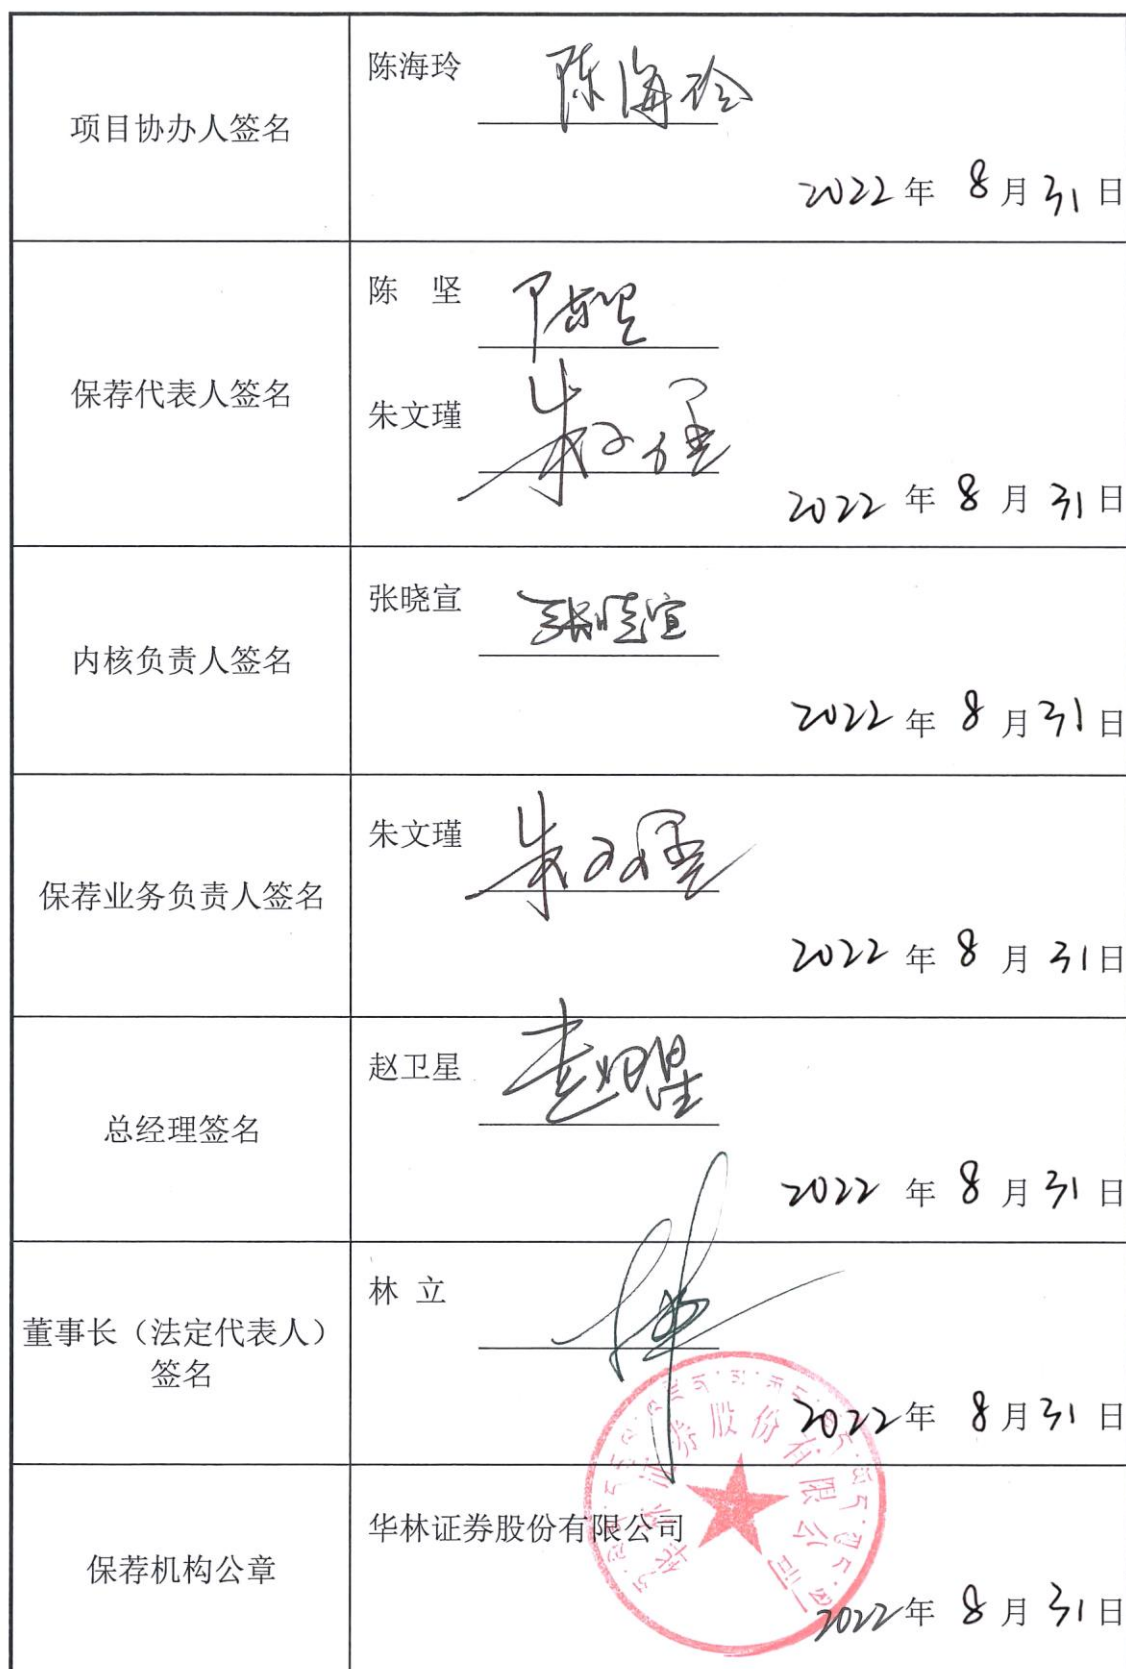 项目协办人签名
陈海玲 陈海玲
2022年 8月31日
保荐代表人签名
陈 坚 陈坚
朱文瑾 朱文瑾
2022 年 8 月 31日
内核负责人签名
张晓宣 张晓宣
2022 年 8 月31日
保荐业务负责人签名
朱文瑾 朱文瑾
2022 年 8 月 31日
总经理签名
赵卫星 赵卫星
2022 年 8 月31日
董事长（法定代表人）
签名
林 立
2022年 8月31日
保荐机构公章
华林证券股份有限公司
华林证券股份有限公司
2022年 8月31日